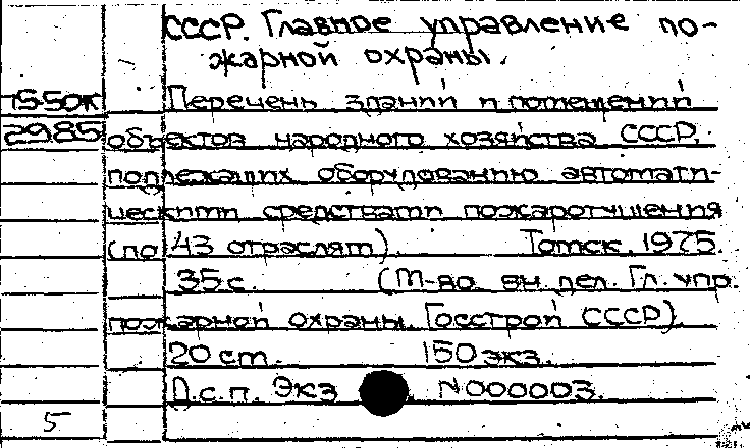 СССР. Главное управление по-
жарной охраны.
Перечень зданий и помещений
2985 объектов народного хозяйства СССР,
подлежащих оборудованию автомати-
ческими средствами пожаротушения
(по 43 отраслям). Томск. 1975.
35 с. (М-во вн. дел. Гл. упр.
пожарной охраны. Госстрой СССР).
20 ст. 150 экз.
Д.с.п. Экз. N 000003.
5